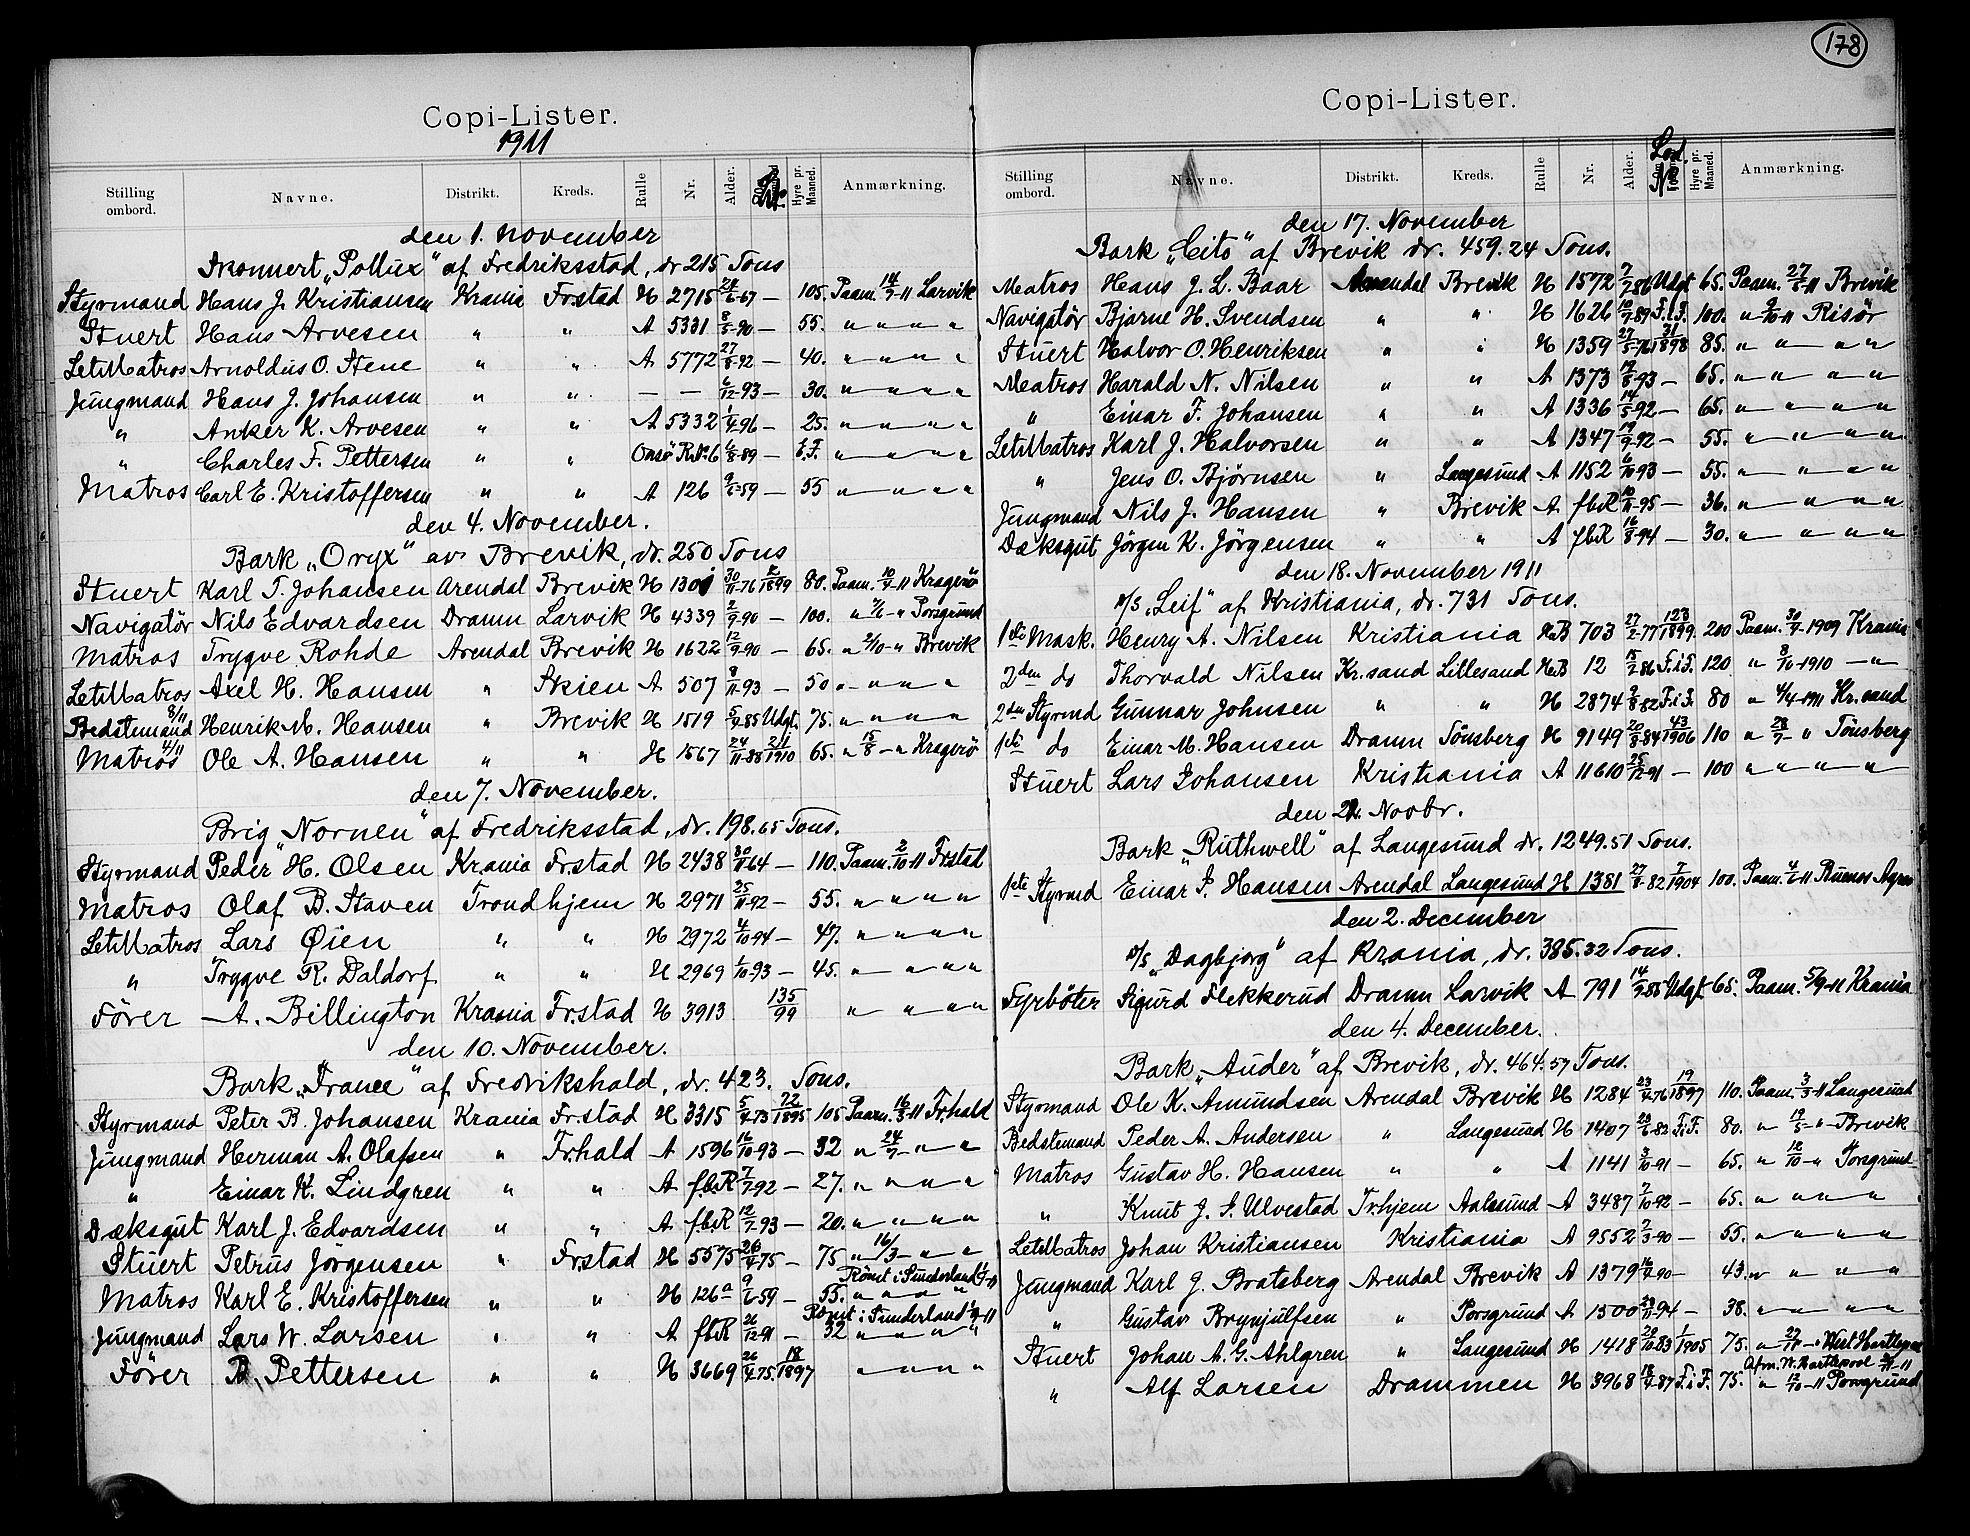 Copi-Lister.
1911
Stilling ombord. Navne. Distrikt. Kreds. Rulle Nr. Alder. Hyre pr. Maaned. Anmærkning.
den 1. November
Skonnert „Pollux“ af Fredriksstad, dr 215 Tons
Styrmand Hans J. Kristiansen Krania Fr.stad H 2715 28/6-67 — 105. Paam. 14/9-11 Larvik
Stuert Hans Arvesen " " A 5331 8/5-90 — 55. " " " "
LetMatros Arnoldus O. Stene " " A 5772 27/8-92 — 40. " " " "
Jungmand Hans J. Johansen " " — — 6/12-93 — 30. " " " "
" Anker K. Arvesen " " A 5332 1/4-96 — 25. " " " "
" Charles F. Pettersen " " Onsö R.No 6 6/8-89 — E.F. " " " "
Matros Carl E. Kristoffersen " " A 126 9/6-59 — 55 " " " "
den 4. November.
Bark „Oryx“ av Brevik, dr. 250 Tons
Stuert Karl T. Johansen Arendal Brevik H 1301 30/11-76 /1899 80. Paam. 10/9-11 Kragerö
Navigatör Nils Edvardsen Dramn Larvik H 4339 2/9-90 — 100. " - " Porsgrund
Matros Trygve Rohde Arendal Brevik H 1622 12/9-90 — 65. " 2/10-" Brevik
LetMatros Axel H. Hansen " Skien A 507 8/11-93 — 50 " " " "
8/11
Bedstemand Henrik M. Hansen " Brevik H 1519 5/9-85 Udgt. 75. " " " "
4/11
Matros Ole A. Hansen " " H 1567 24/11-88 21/1910 65. " 15/8-" Kragerö
den 7. November.
Brig „Nornen“ af Fredriksstad, dr. 198.65 Tons.
Styrmand Peder H. Olsen Krania Fr.stad H 2438 30/11-64 — 110. Paam. 2/10-11 Fr.stad
Matros Olaf B. Staven Trondhjem H 2971 25/11-92 — 55. " " " "
LetMatros Lars Øien " " H 2972 4/10-94 — 47. " " " "
" Trygve R. Daldorf " " H 2969 1/10-93 — 45. " " " "
Förer A. Billington Krania Fr.stad H 3913 135/99 " " " "
den 10. November.
Bark „France“ af Fredrikshald, dr. 423. Tons.
Styrmand Peter B. Johansen Krania Fr.stad H 3315 5/4-73 72/1895 105 Paam. 16/3-11 Fr.hald
Jungmand Herman A. Olafsen " Fr.hald A 1596 16/10-93 — 32 " 24/7-" " "
" Einar K. Lindgren " " A f.b.R 7/7-92 — 27. " " " "
Dæksgut Karl J. Edvardsen " " A f.b.R 12/7-93 — 20. " " " "
Stuert Petrus Jörgensen " Fr.stad H 5575 26/4-75 — 75 " 16/3-" " "
Römt i Sunderland
Matros Karl E. Kristoffersen " " H 126a 9/6-59 — 55. " " " "
Römt i Sunderland
Jungmand Lars W. Larsen " " A f.b.R 26/12-91 — 32 " " " "
Förer B. Pettersen " " H 3669 26/4-75 18/1897 " " " "
178
Copi-Lister.
Stilling ombord. Navne. Distrikt. Kreds. Rulle Nr. Alder. Lod. No Hyre pr. Maaned. Anmærkning.
den 17. November
Bark „Cito“ af Brevik dr. 459.24 Tons.
Matros Hans J. L. Baar Arendal Brevik H 1572 7/2-86 Udgt 65. Paam. 27/6-11 Brevik
Navigatör Bjarne H. Svendsen " " H 1626 10/7-89 F.i.F. 100. " 9/10-11 Risör
Stuert Halvor O. Henriksen " " H 1359 27/5-76 31/1898 85. " " " "
Matros Harald N. Nilsen " " A 1373 19/8-93 — 65. " " " "
" Einar F. Johansen " " A 1336 14/5-92 — 65. " " " "
LetMatros Karl J. Halvorsen " " A 1347 19/9-92 — 55. " " " "
" Jens O. Bjørnsen " Langesund A 1152 6/10-93 — 55. " " " "
Jungmand Nils J. Hansen " Brevik A f.b.R 10/11-95 — 36. " " " "
Dæksgut Jörgen K. Jörgensen " " A f.b.R 16/8-94 — 30. " " " "
den 18. November 1911
D/S „Leif“ af Kristiania, dr. 731 Tons.
1ste Mask. Henry A. Nilsen Kristiania H.B 703 27/2-77 123/1899 200 Paam. 30/9-1909 Krania
2den do Thorvald Nilsen Kr.sand Lillesand H.B 12 15/2-86 F.i.F. 120 " 8/10-1910 — "
2den Styrmd Gunnar Johnsen " " H 2874 9/8-82 F.i.F. 80 " 4/4-1911 Kr.sand
1ste do Einar M. Hansen Dramn Tönsberg H 9149 20/8-84 43/1906 110 " 28/7-" Tönsberg
Stuert Lars Johansen Kristiania A 11610 25/12-91 — 100 " " " "
den 21. Novbr.
Bark „Ruthwell“ af Langesund dr. 1249.51 Tons.
1ste Styrmd Einar F. Hansen Arendal Langesund H 1381 27/8-82 7/1904 100. Paam. 4/6-11 Buenos Ayres
den 2. December
D/S „Dagbjorg“ af Krania, dr. 385.32 Tons.
Fyrböter Sigurd Flekkerud Dramn Larvik A 791 14/9-85 Udgt. 65. Paam. 5/9-11 Krania
den 4. December.
Bark „Auder“ af Brevik, dr. 464.57 Tons.
Styrmand Ole K. Amundsen Arendal Brevik H 1284 23/4-76 19/1897 110. Paam. 3/3-11 Langesund
Bedstemand Peder A. Andersen " Langesund H 1407 28/6-83 F.i.F. 80. " 19/5-" Brevik
Matros Gustav H. Hansen " " A 1141 3/10-91 — 65. " 12/10-" Porsgrund
" Knut J. S. Ulvestad Tr.hjem Aalesund A 3487 7/10-92 — 65. " " " "
LetMatros Johan Kristiansen Kristiania A 9552 2/3-90 — 55. " " " "
Jungmand Karl J. Bratsberg Arendal Brevik A 1379 16/4-90 — 43. " " " "
" Gustav Brynjulfsen " Porsgrund A 1500 28/11-94 — 38. " " " "
Stuert Johan A. G. Ahlgren " Langesund H 1418 20/10-83 1/1905 75. " 27/11-" West Hartlepool
Afm. W. Hartlepool -11
" Alf Larsen Drammen H 3968 18/4-87 F.i.F. 75. " 12/10-11 Porsgrund